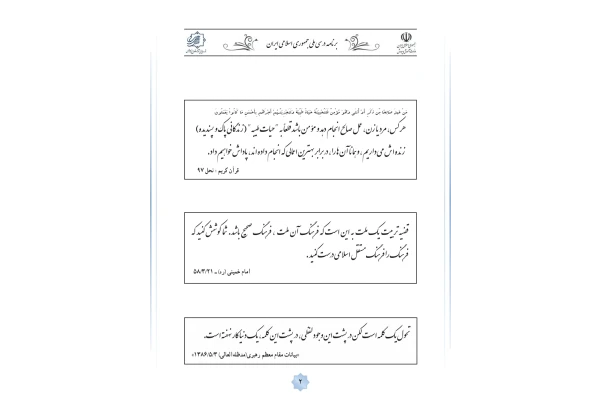 برنامه درسی ملی جمهوری اسلامی ایران
مَن عَمِلَ صَالِحًا مِّن ذَكَرٍ أَوْ أُنثَى وَهُوَ مُؤْمِنٌ فَلَنُحْيِيَنَّهُ حَيَاةً طَيِّبَةً وَلَنَجْزِيَنَّهُمْ أَجْرَهُم بِأَحْسَنِ مَا كَانُوا يَعْمَلُونَ
هر کس، مرد یا زن، عمل صالح انجام دهد و مؤمن باشد قطعاً به "حیات طیبه" (زندگانی پاک و پسندیده)
زنده اش می داریم، و همانا آن ها را، در برابر بهترین اعمالی که انجام داده اند، پاداش خواهیم داد.
قرآن کریم - نحل ۹۷
قضیه تربیت یک ملت به این است که فرهنگ آن ملت، فرهنگ صحیح باشد، شما کوشش کنید که
فرهنگ را فرهنگ مستقل اسلامی درست کنید.
امام خمینی (ره) - ۵۸/۳/۲۱
تحول یک کلمه است لکن در پشت این وجود لفظی، در پشت این کلمه، یک دنیا کار نهفته است.
«بیانات مقام معظم رهبری (مدظله العالی) ۱۳۸۶/۵/۳»
۲